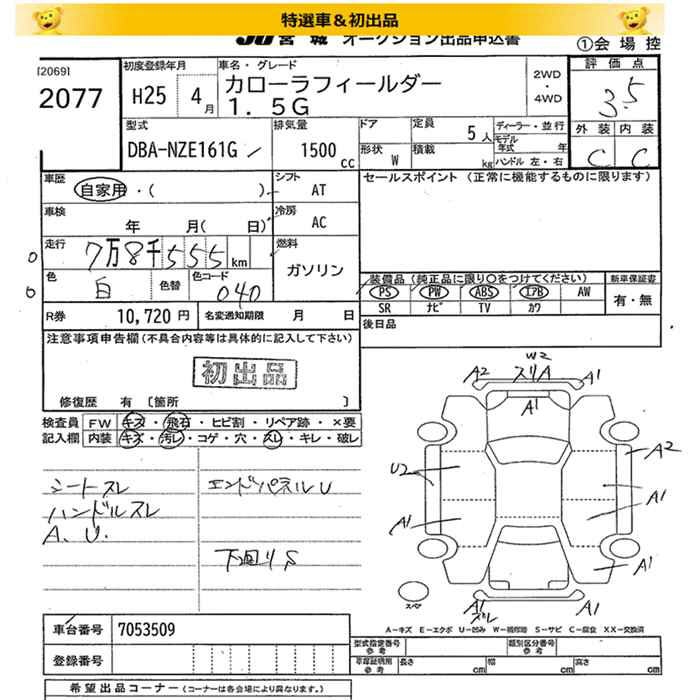 特選車&初出品
JU 宮城 オークション出品申込書
①会場控
[2069]
2077
初度登録年月
H25 4月
車名・グレード
カローラフィールダー
1.5G
2WD・4WD
評価点
3.5
外装 内装
C C
型式
DBA-NZE161G
排気量
1500cc
ドア 定員 5人
形状 W 積載 kg
ディーラー・並行
モデル年式 年
ハンドル 左・右
車歴
自家用・( )
シフト AT
車検
年 月(日)
冷房 AC
走行
7万8千555km
燃料
ガソリン
色
白
色替
色コード
040
R券 10,720円
名変通知期限 月 日
セールスポイント (正常に機能するものに限ります)
装備品 (純正品に限り○をつけてください)
PS PW ABS エアB AW
SR ナビ TV カワ
新車保証書
有・無
後日品
注意事項申告欄(不具合内容等は具体的に記入して下さい)
初出品
修復歴 有 〔箇所 〕
検査員記入欄
FW キズ・飛石・ヒビ割・リペア跡・×要
内装 キズ・汚レ・コゲ・穴・スレ・キレ・破レ
シートスレ
ハンドルスレ
A、U.
エンドパネルU
下回りS
W2
A2 スリA A1
A1
U2
A2
A1
A1
A1
A1
スレ
A1
スペア
A-キズ E-エクボ U-凹み W-補修跡 S-サビ C-腐食 XX-交換済
車台番号 7053509
登録番号
型式指定番号 参考
類別区分番号 参考
車庫証明用 参考
長さ cm 幅 cm 高さ cm
希望出品コーナー (コーナーは各会場により異なります。)